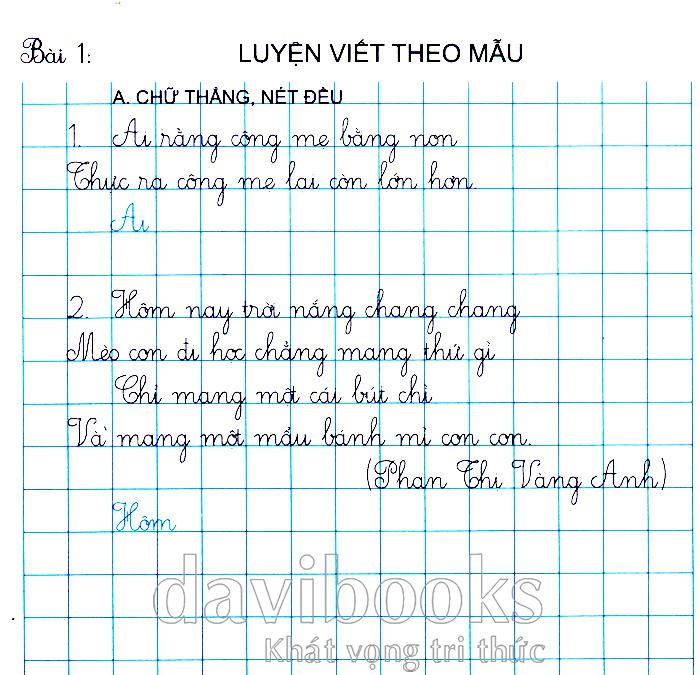 Bài 1: LUYỆN VIẾT THEO MẪU
A. CHỮ THẲNG, NÉT ĐỀU
1. Ai rằng công mẹ bằng non
Thực ra công mẹ lại còn lớn hơn.
Ai
2. Hôm nay trời nắng chang chang
Mèo con đi học chẳng mang thứ gì
Chỉ mang một cái bút chì
Và mang một mẩu bánh mì con con.
(Phan Thị Vàng Anh)
Hôm
davibooks
Khát vọng tri thức